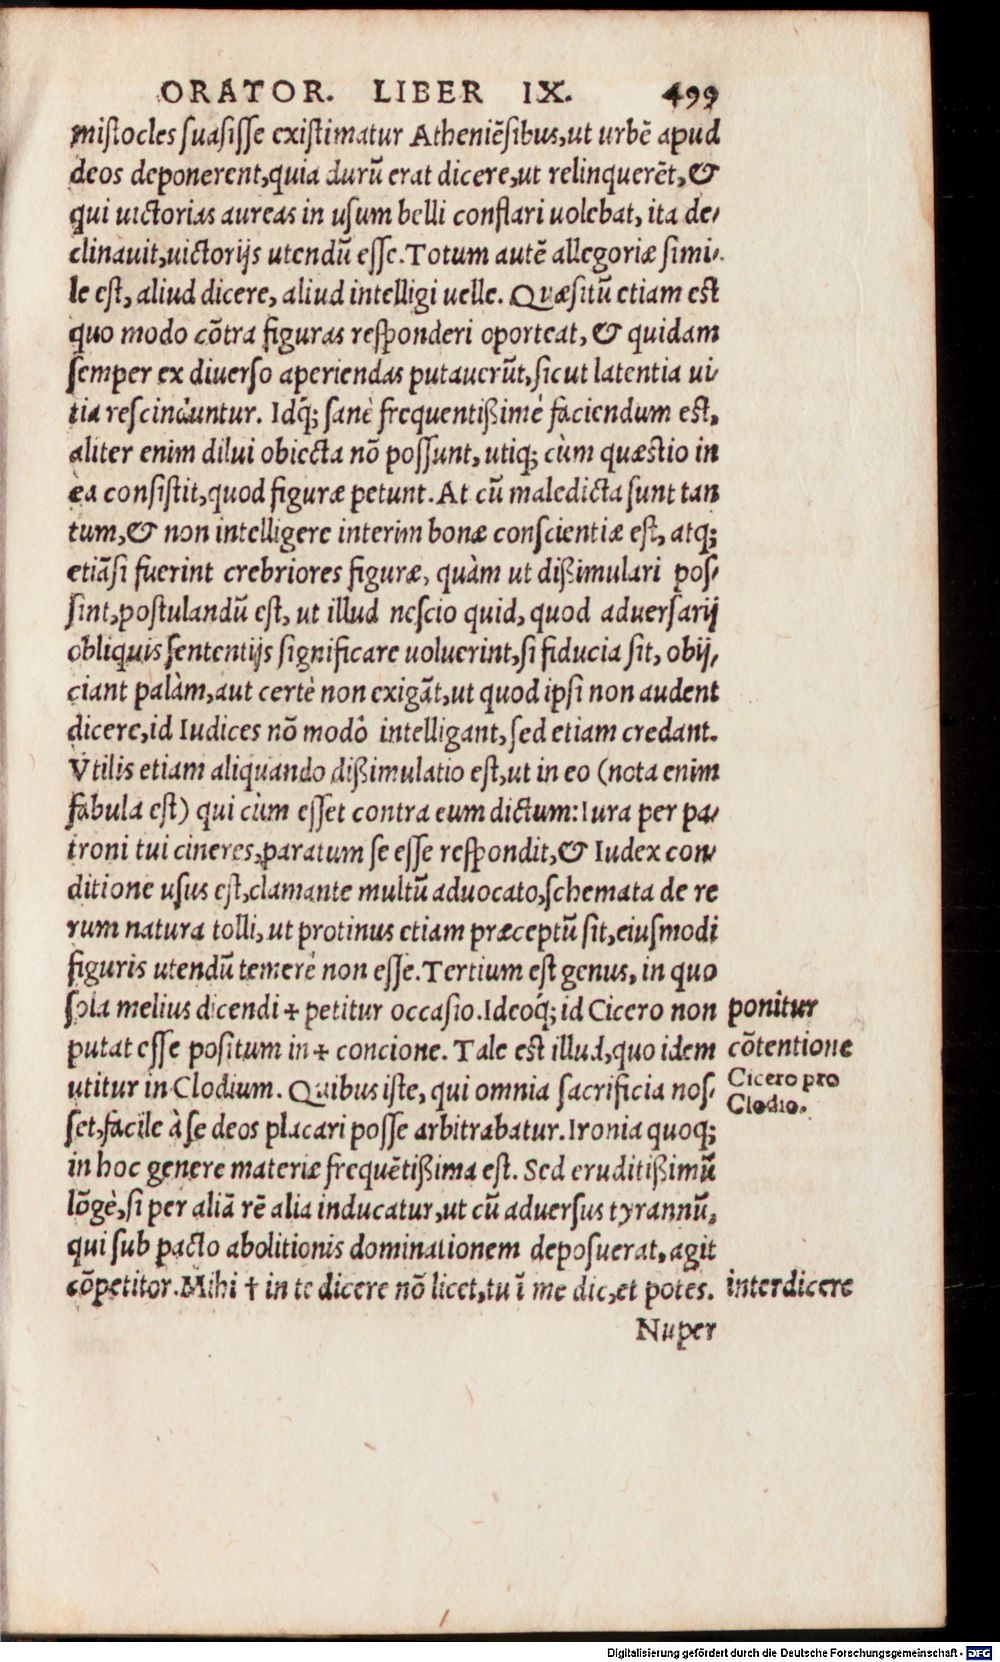 ORATOR. LIBER IX. 499
mistocles suasisse existimatur Atheniēsibus, ut urbē apud
deos deponerent, quia durū erat dicere, ut relinquerēt, &
qui uictorias aureas in usum belli conflari uolebat, ita de-
clinauit, uictorijs utendū esse. Totum autē allegoriæ simi-
le est, aliud dicere, aliud intelligi uelle. Quæsitū etiam est
quo modo cōtra figuras responderi oporteat, & quidam
semper ex diuerso aperiendas putauerūt, sicut latentia ui-
tia rescinduntur. Idq́; sanè frequentißimè faciendum est,
aliter enim dilui obiecta nō possunt, utiq; cùm quæstio in
ea consistit, quod figuræ petunt. At cū maledicta sunt tan
tum, & non intelligere interim bonæ conscientiæ est, atq;
etiāsi fuerint crebriores figuræ, quàm ut dißimulari pos-
sint, postulandū est, ut illud nescio quid, quod aduersarij
obliquis sententijs significare uoluerint, si fiducia sit, obij-
ciant palàm, aut certè non exigāt, ut quod ipsi non audent
dicere, id Iudices nō modò intelligant, sed etiam credant.
Vtilis etiam aliquando dißimulatio est, ut in eo (nota enim
fabula est) qui cùm esset contra eum dictum: Iura per pa-
troni tui cineres, paratum se esse respondit, & Iudex con-
ditione usus est, clamante multū aduocato, schemata de re
rum natura tolli, ut protinus etiam præceptū sit, eiusmodi
figuris utendū temerè non esse. Tertium est genus, in quo
sola melius dicendi + petitur occasio. Ideoq́; id Cicero non ponitur
putat esse positum in + concione. Tale est illud, quo idem cōtentione
utitur in Clodium. Quibus iste, qui omnia sacrificia nos- Cicero pro
Clodio.
set, facile à se deos placari posse arbitrabatur. Ironia quoq;
in hoc genere materiæ frequētißima est. Sed eruditißimū
lōgè, si per aliā rē alia inducatur, ut cū aduersus tyrannū,
qui sub pacto abolitionis dominationem deposuerat, agit
cōpetitor. Mihi † in te dicere nō licet, tu ī me dic, et potes. interdicere
Nuper
Digitalisierung gefördert durch die Deutsche Forschungsgemeinschaft - DFG